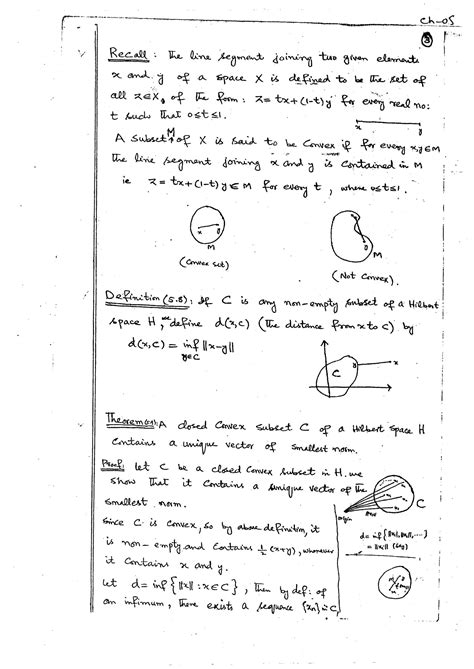 Ch-05
8
Recall: The line segment joining two given elements
x and y of a space X is defined to be the set of
all z∈X, of the form: z=tx+(1-t)y for every real no:
t such that 0≤t≤1.
x y
A subset M of X is said to be convex if for every x,y∈M
the line segment joining x and y is contained in M
ie z=tx+(1-t)y∈M for every t, where 0≤t≤1.
x y
M
(Convex set)
M
(Not Convex).
Definition (5.8): If C is any non-empty subset of a Hilbert
space H, we define d(x,C) (the distance from x to C) by
d(x,C) = inf ||x-y||
y∈C
C y x
Theorem: A closed convex subset C of a Hilbert space H
contains a unique vector of smallest norm.
Proof: Let C be a closed convex subset in H. we
show that it contains a unique vector of the
smallest norm.
C
origin
Since C is convex, so by above definition, it
is non-empty and contains ½(x+y), whenever
it contains x and y.
Let d = inf{||x|| : x∈C}, Then by def: of
an infimum, there exists a sequence {xn} in C,